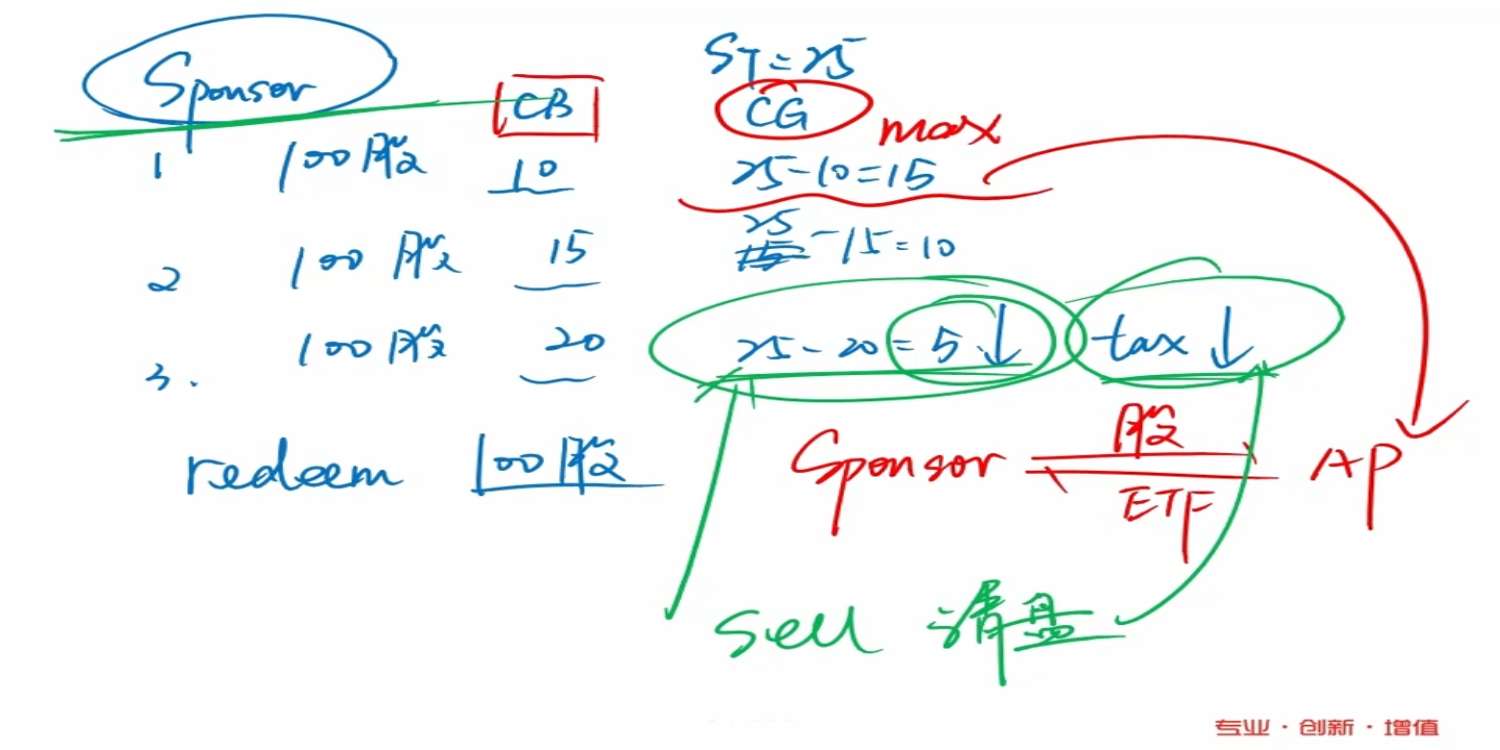 Sponsor CB ST=25
CG max
1 100股 10 25-10=15
2 100股 15 25-15=10
3. 100股 20 25-20=5↓ tax↓
redeem 100股 Sponsor 股 AP
ETF
Sell 清盘
专业·创新·增值